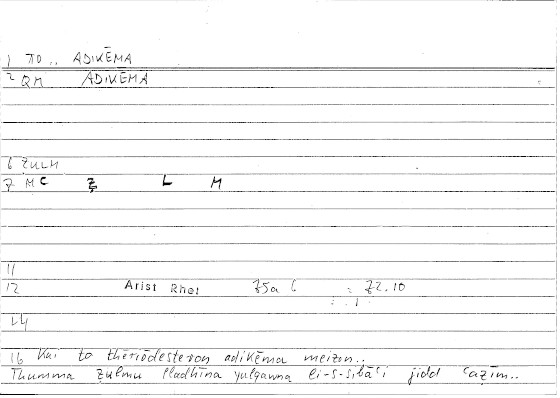 1 πο .. ADIKĒMA
2 QM ADIKĒMA
6 ẒULM
7 MC Ẓ L M
11
12 Arist Rhet 75a 6 : 72.10
14
16 Kai to thēriōdesteron adikēma meizon..
Thumma ẓulmu lladhīna yulqawna li-s-sibāʿi jidd ʿaẓīm..